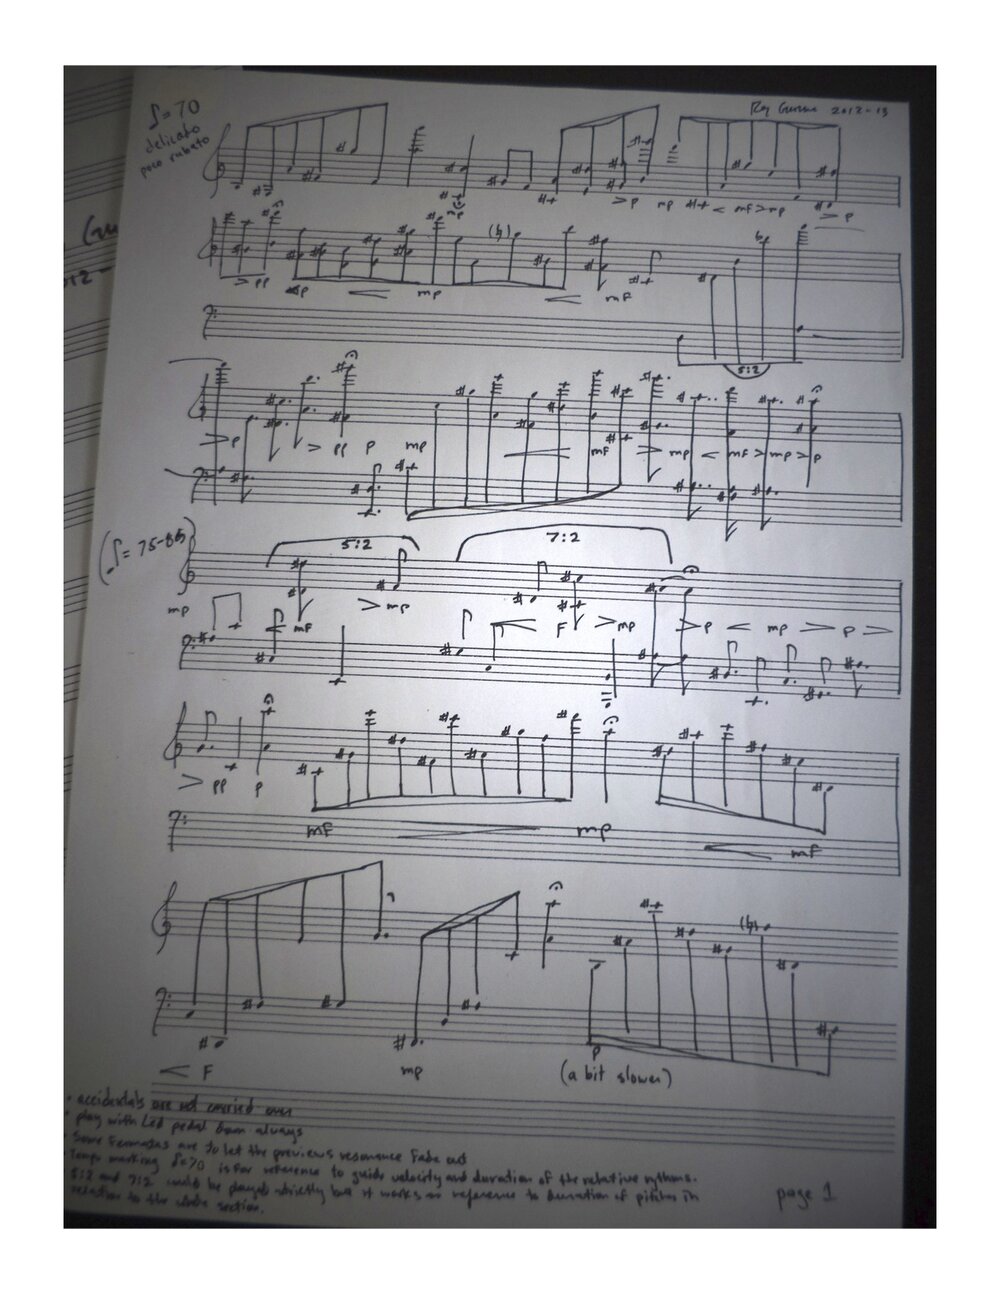 ♪= 70
delicato
poco rubato
2012-13
>p mp < mf > mp > p
mp
>pp p < mp < mf
(♮)
5:2
>p > pp p mp < mf > mp < mf > mp > p
(♪= 75-85)
5:2 7:2
mp < mf > mp < F > mp > p < mp > p >
> pp p
mF > mp < mf
(♮)
< F mp p (a bit slower)
• accidentals are not carried over
• play with Led pedal down always
• Some Fermatas are to let the previous resonance Fade out
• Tempo marking ♪=70 is for reference to guide velocity and duration of the relative rythms.
5:2 and 7:2 could be played strictly but it works as reference to duration of pitches in
relation to the whole section.
page 1